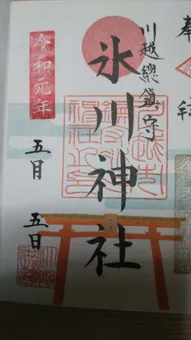 奉
川越總鎮守
氷川神社
令和元年
五月
五日